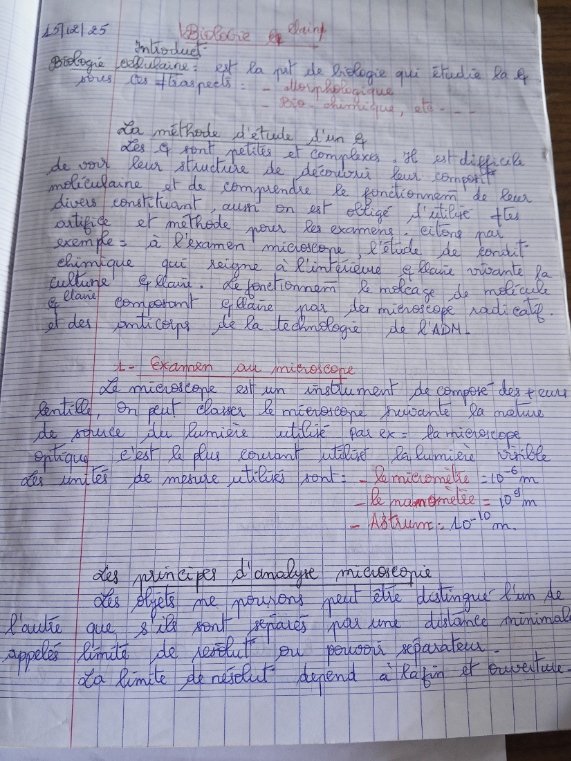 15/12/25 Biologie
Introduct°
Biologie cellulaire = est la prt de biologie qui étudie la ɕ
sous ces +traspects = - Morphologique
- Bio-chimique, etc - - -
La méthode d'étude d'un ɕ
Les ɕ sont petites et complexes. Il est difficile
de voir leur structure de découvrir leur composit°
moliculaine, et de comprendre le fonctionnem de leur
divers constituant, aussi on est obligé d'utilisé +trs
artifice et méthode pour les examens. citons par
exemple = à l'examen microscope, l'étude de condit°
chimique qui reigne à l'intérieure ɕllaire vivante la
culture ɕllaire. Le fonctionnem le molcage de molécule
ɕllaire composant ɕllaire par des microscope radicatif.
et des anticorps de la technologie de l'ADM.
1- Examen au microscope
Le microscope est un instrument de composé des +eurs
lentille, on peut classer le microscope suivante la nature
de source du lumière utilisé par ex = la microscope
optique c'est le plus courant utilisé la lumière visible
Les unités de mesure utilisés sont = - le micromètre = 10⁻⁶ m
- le nanomètre = 10⁹ m
- Astrum = 10⁻¹⁰ m.
Les principes d'analyse microscopie
Les objets ne pouvons peut être distingué l'un de
l'autre que s'ils sont séparés par une distance minimale
appelés limité de resolut ou pouvoir séparateur.
La limite de résolut depend à la fin et ouverture.